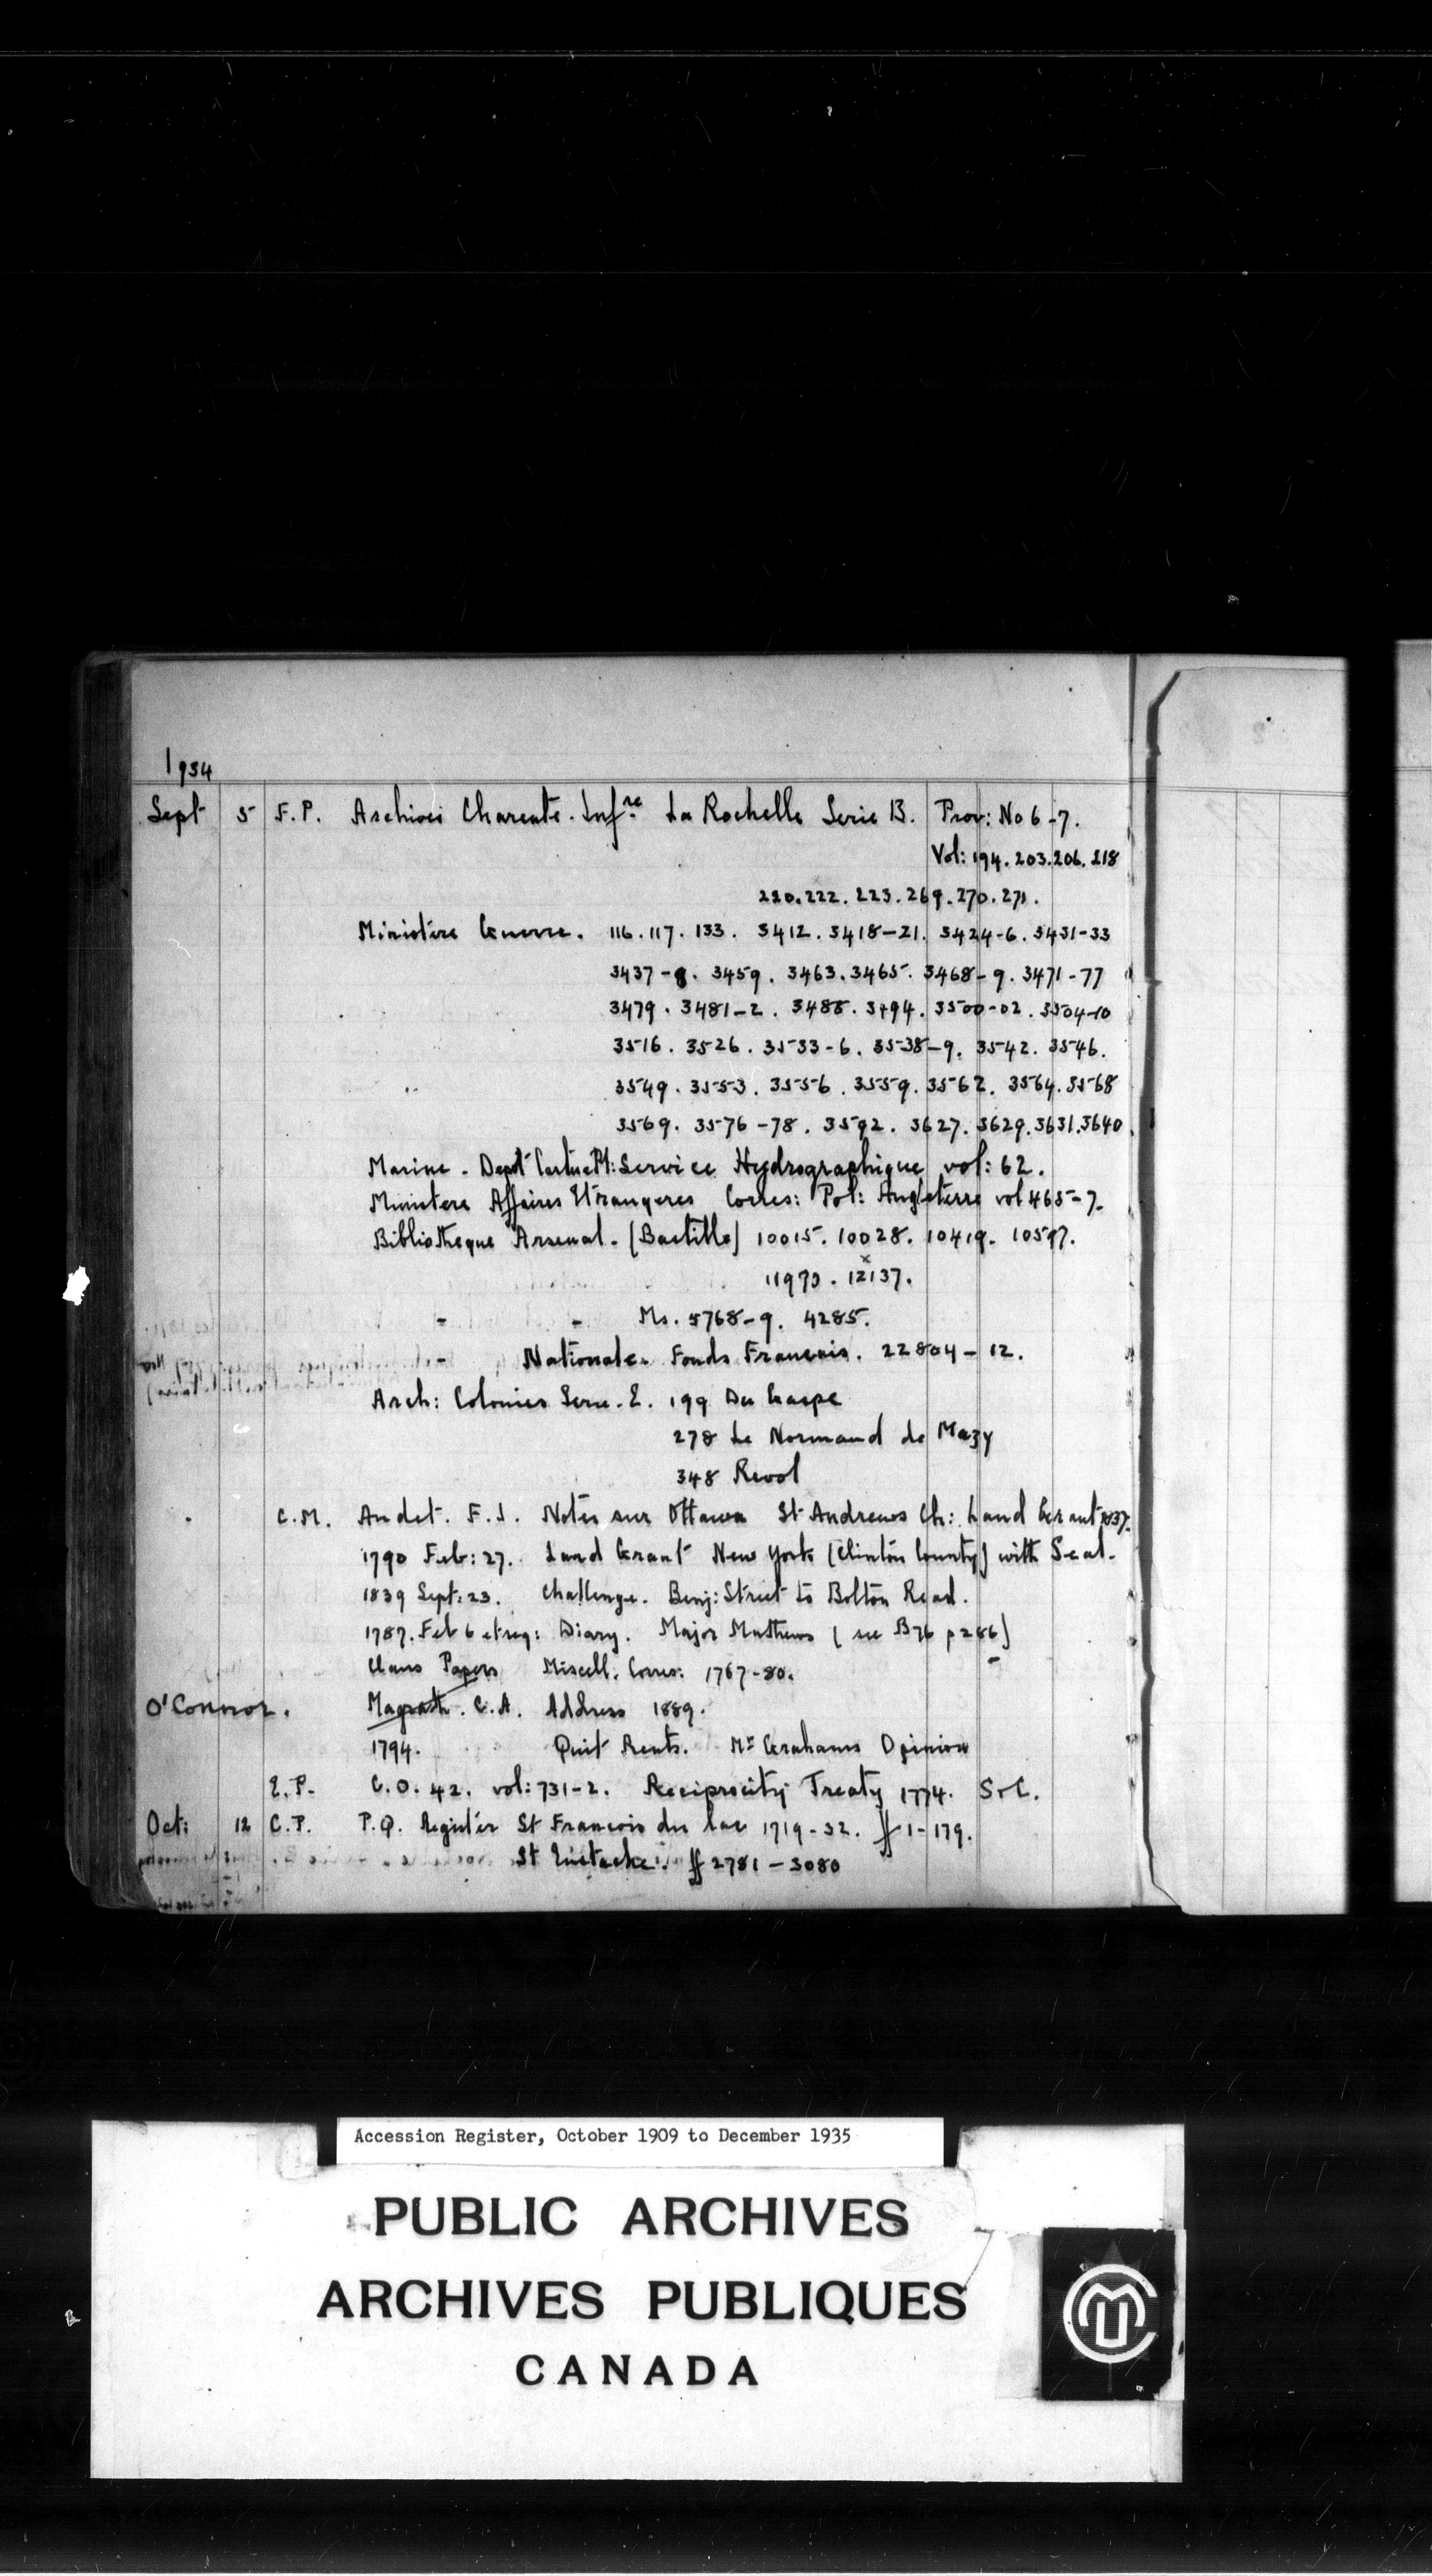 1934
Sept 5 F.P. Archives Charente. Infre La Rochelle Serie B. Prov: No 6-7.
Vol: 194. 203. 206. 218
220. 222. 223. 269. 270. 271.
Ministère Guerre. 116. 117. 133. 3412. 3418-21. 3424-6. 3431-33
3437-8. 3459. 3463. 3465. 3468-9. 3471-77
3479. 3481-2. 3488. 3494. 3500-02. 3504-10
3516. 3526. 3533-6. 3538-9. 3542. 3546.
3549. 3553. 3556. 3559. 3562. 3564. 3568
3569. 3576-78. 3592. 3627. 3629. 3631. 3640.
Marine. Depôt Service Hydrographique vol: 62.
Ministere Affaires Etrangeres Corres: Pol: Angleterre vol 465-7.
Bibliotheque Arsenal. (Bastille) 10015. 10028. 10419. 10597.
x
11970. 12137.
- - Ms. 5768-9. 4285.
- Nationale. Fonds Francais. 22804-12.
Arch: Colonies Serie. E. 199 Du
278 Le Normand de Mezy
348 Revol
C.M. Audet. F.J. Notes sur Ottawa St Andrews Ch: Land Grant 1837.
1790 Feb: 27. Land Grant New York (Clinton County) with Seal.
1839 Sept: 23. Challenge. Benj: Street to Bolton Read.
1787. Feb 6 et seq: Diary. Major Mathews (see B76 p 286)
Claus Papers Miscell. Corres: 1767-80.
O'Connor. Magrath. C.A. Address 1889.
1794. Quit Rents. Mr Grahams Opinion
E.P. C.O. 42. vol: 731-2. Reciprocity Treaty 1774. S+C.
Oct: 12 C.P. P.Q. Register St Francois du lac 1719-32. ff 1-179.
St Eustache. ff 2781-3080
Accession Register, October 1909 to December 1935
PUBLIC ARCHIVES
ARCHIVES PUBLIQUES
CANADA